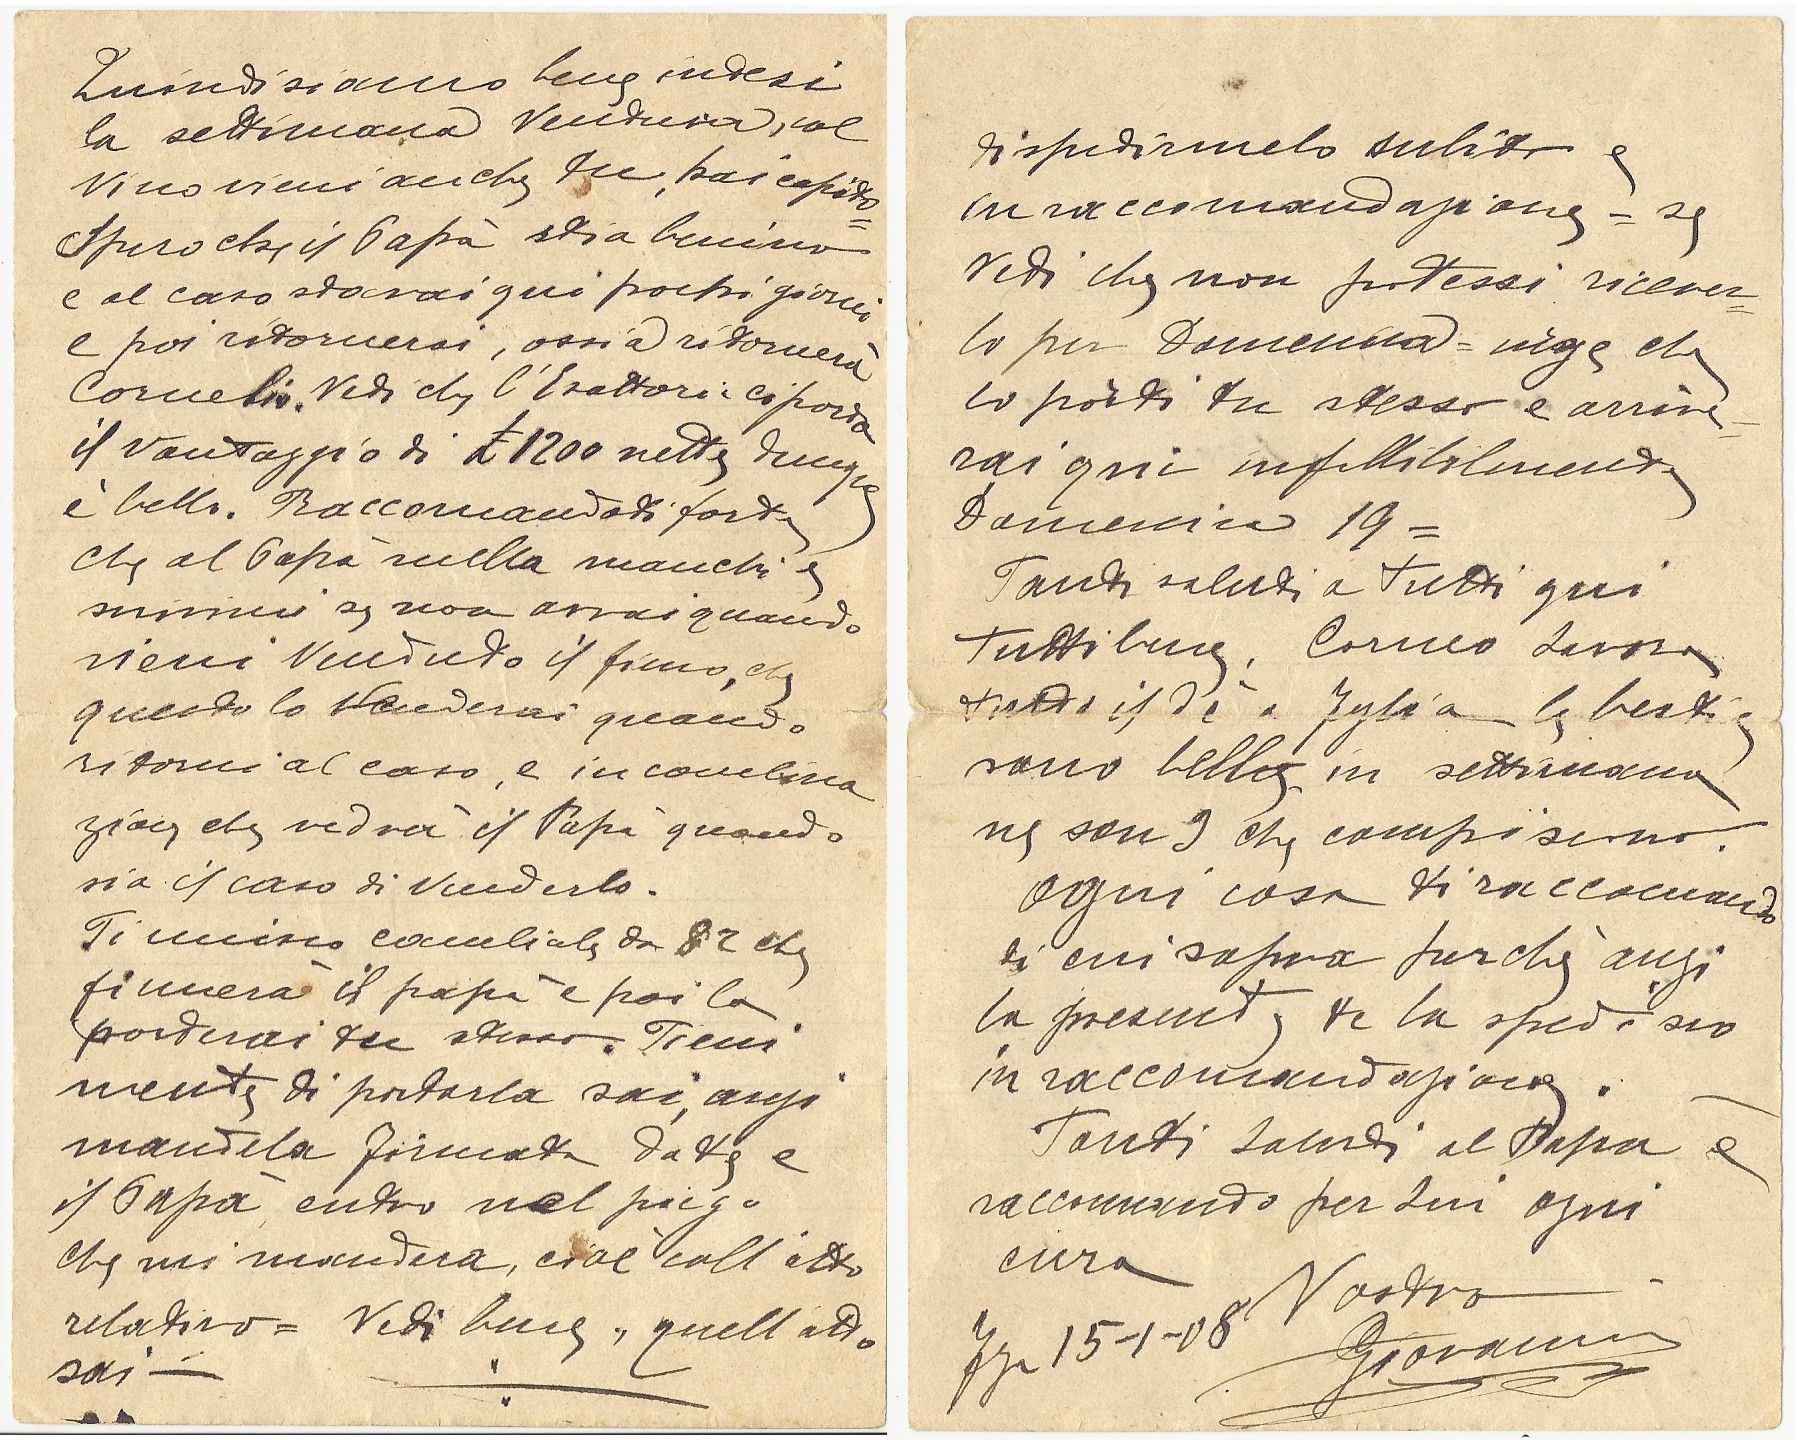 Quindi siamo bene intesi
la settimana ventura, col
vino vieni anche tu, hai capito=
Spero che il Papà stia benino
e al caso starai qui pochi giorni
e poi ritornerai, ossia ritornerà
Cornelio. Vedi che l'Esattoria ci porta
il vantaggio di £ 1200 nette dunque
è bello. Raccomandati forte
che al Papà nulla manchi e
scrivimi se non avrai quando
vieni venduto il fieno, che
questo lo venderai quando
ritorni al caso, e in combina
zione che vedrà il Papà quando
sia il caso di venderlo.
Ti unisco cambiale da 82 che
firmerà il papà e poi la
porterai tu stesso. Tieni
mente di portarla sai, anzi
mandela firmata date e
il Papà entro nel piego
che mi manderà, cioè coll'atto
relativo = Vedi bene, quell'atto
sai —
di spedirmelo subito e
in raccomandazione = se
vedi che non potessi ricever=
lo per Domenica =
lo porti tu stesso e arrive=
rai qui infallibilmente
Domenica 19 =
Tanti saluti a tutti qui
tutti bene, Corneo lavora
tutto il dì a le bestie
sono belle, in settimana
ne son 3 che compiscono.
Ogni cosa ti raccomando
di cui sopra perchè anzi
la presente te la spedisco
in raccomandazione.
Tanti saluti al Papà e
raccomando per lui ogni
cura
Vostro
15-1-08 Giovanni